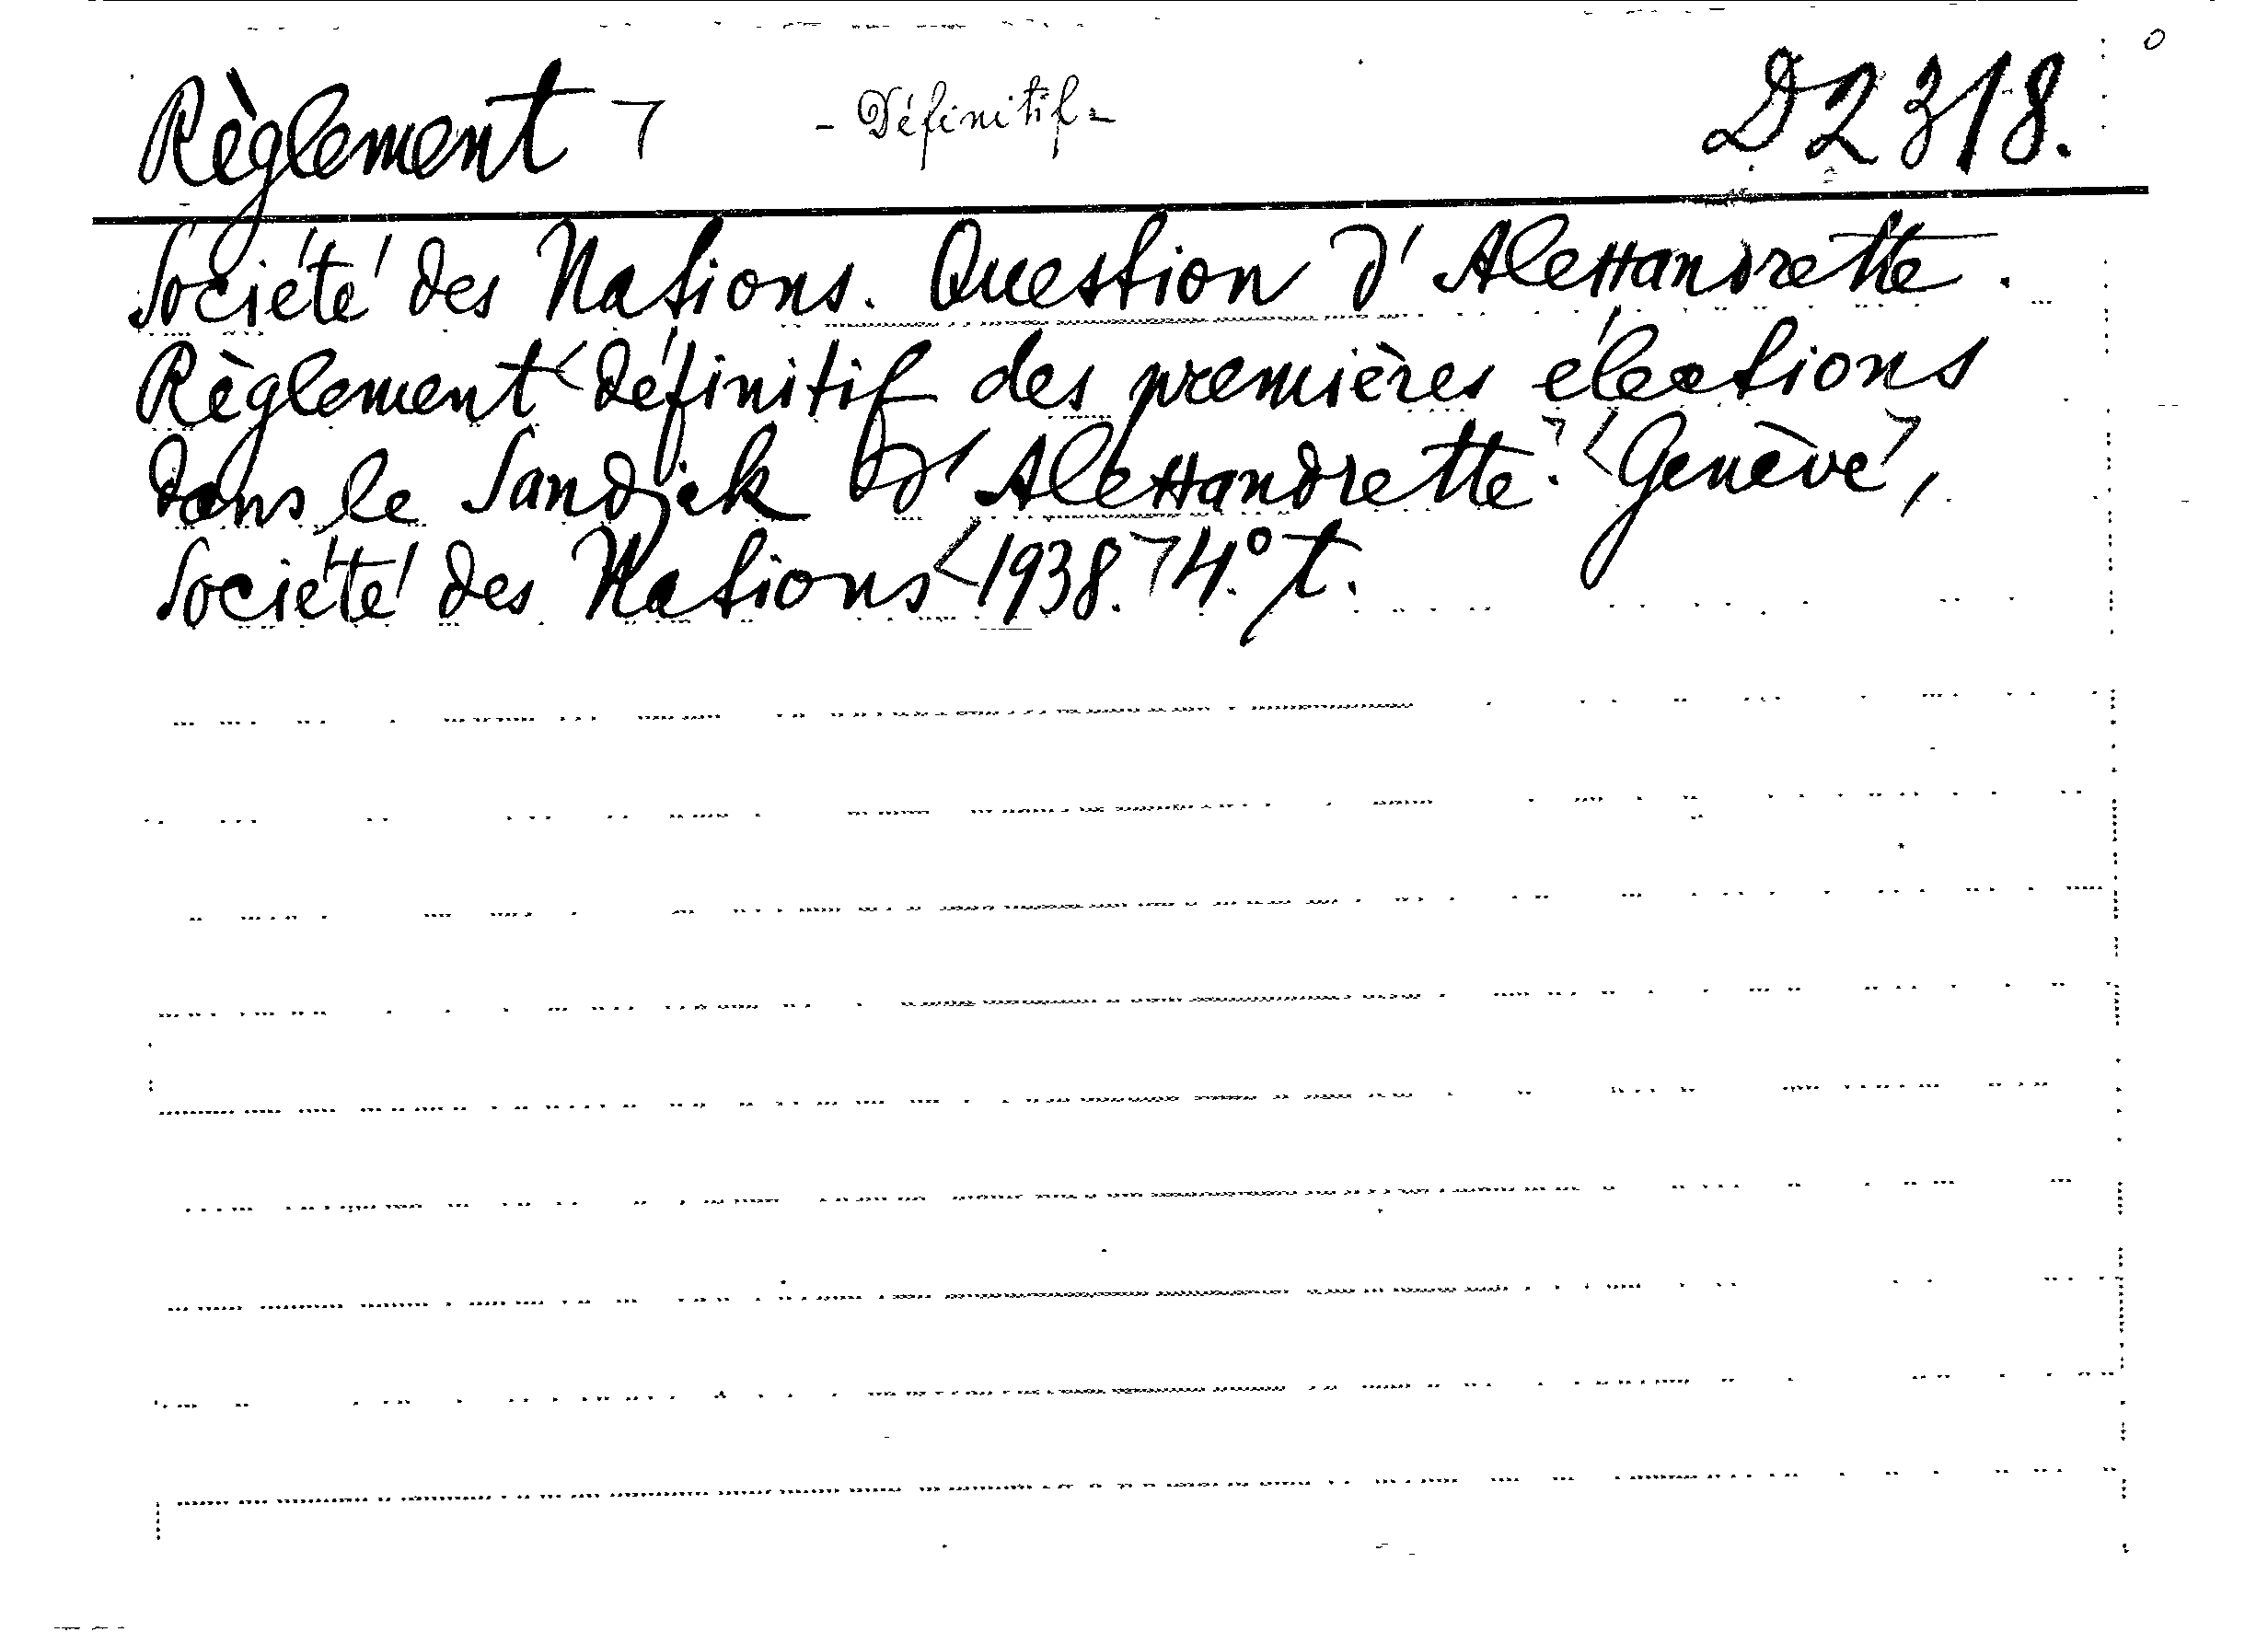 Règlement ¬ - Définitif - D2318.
Société des Nations. Question d'Alexandrette.
Règlement < définitif des premières élections
dans le Sandjak d'Alexandrette ¬. < Genève ¬,
Société des Nations < 1938. ¬ 4.° t.